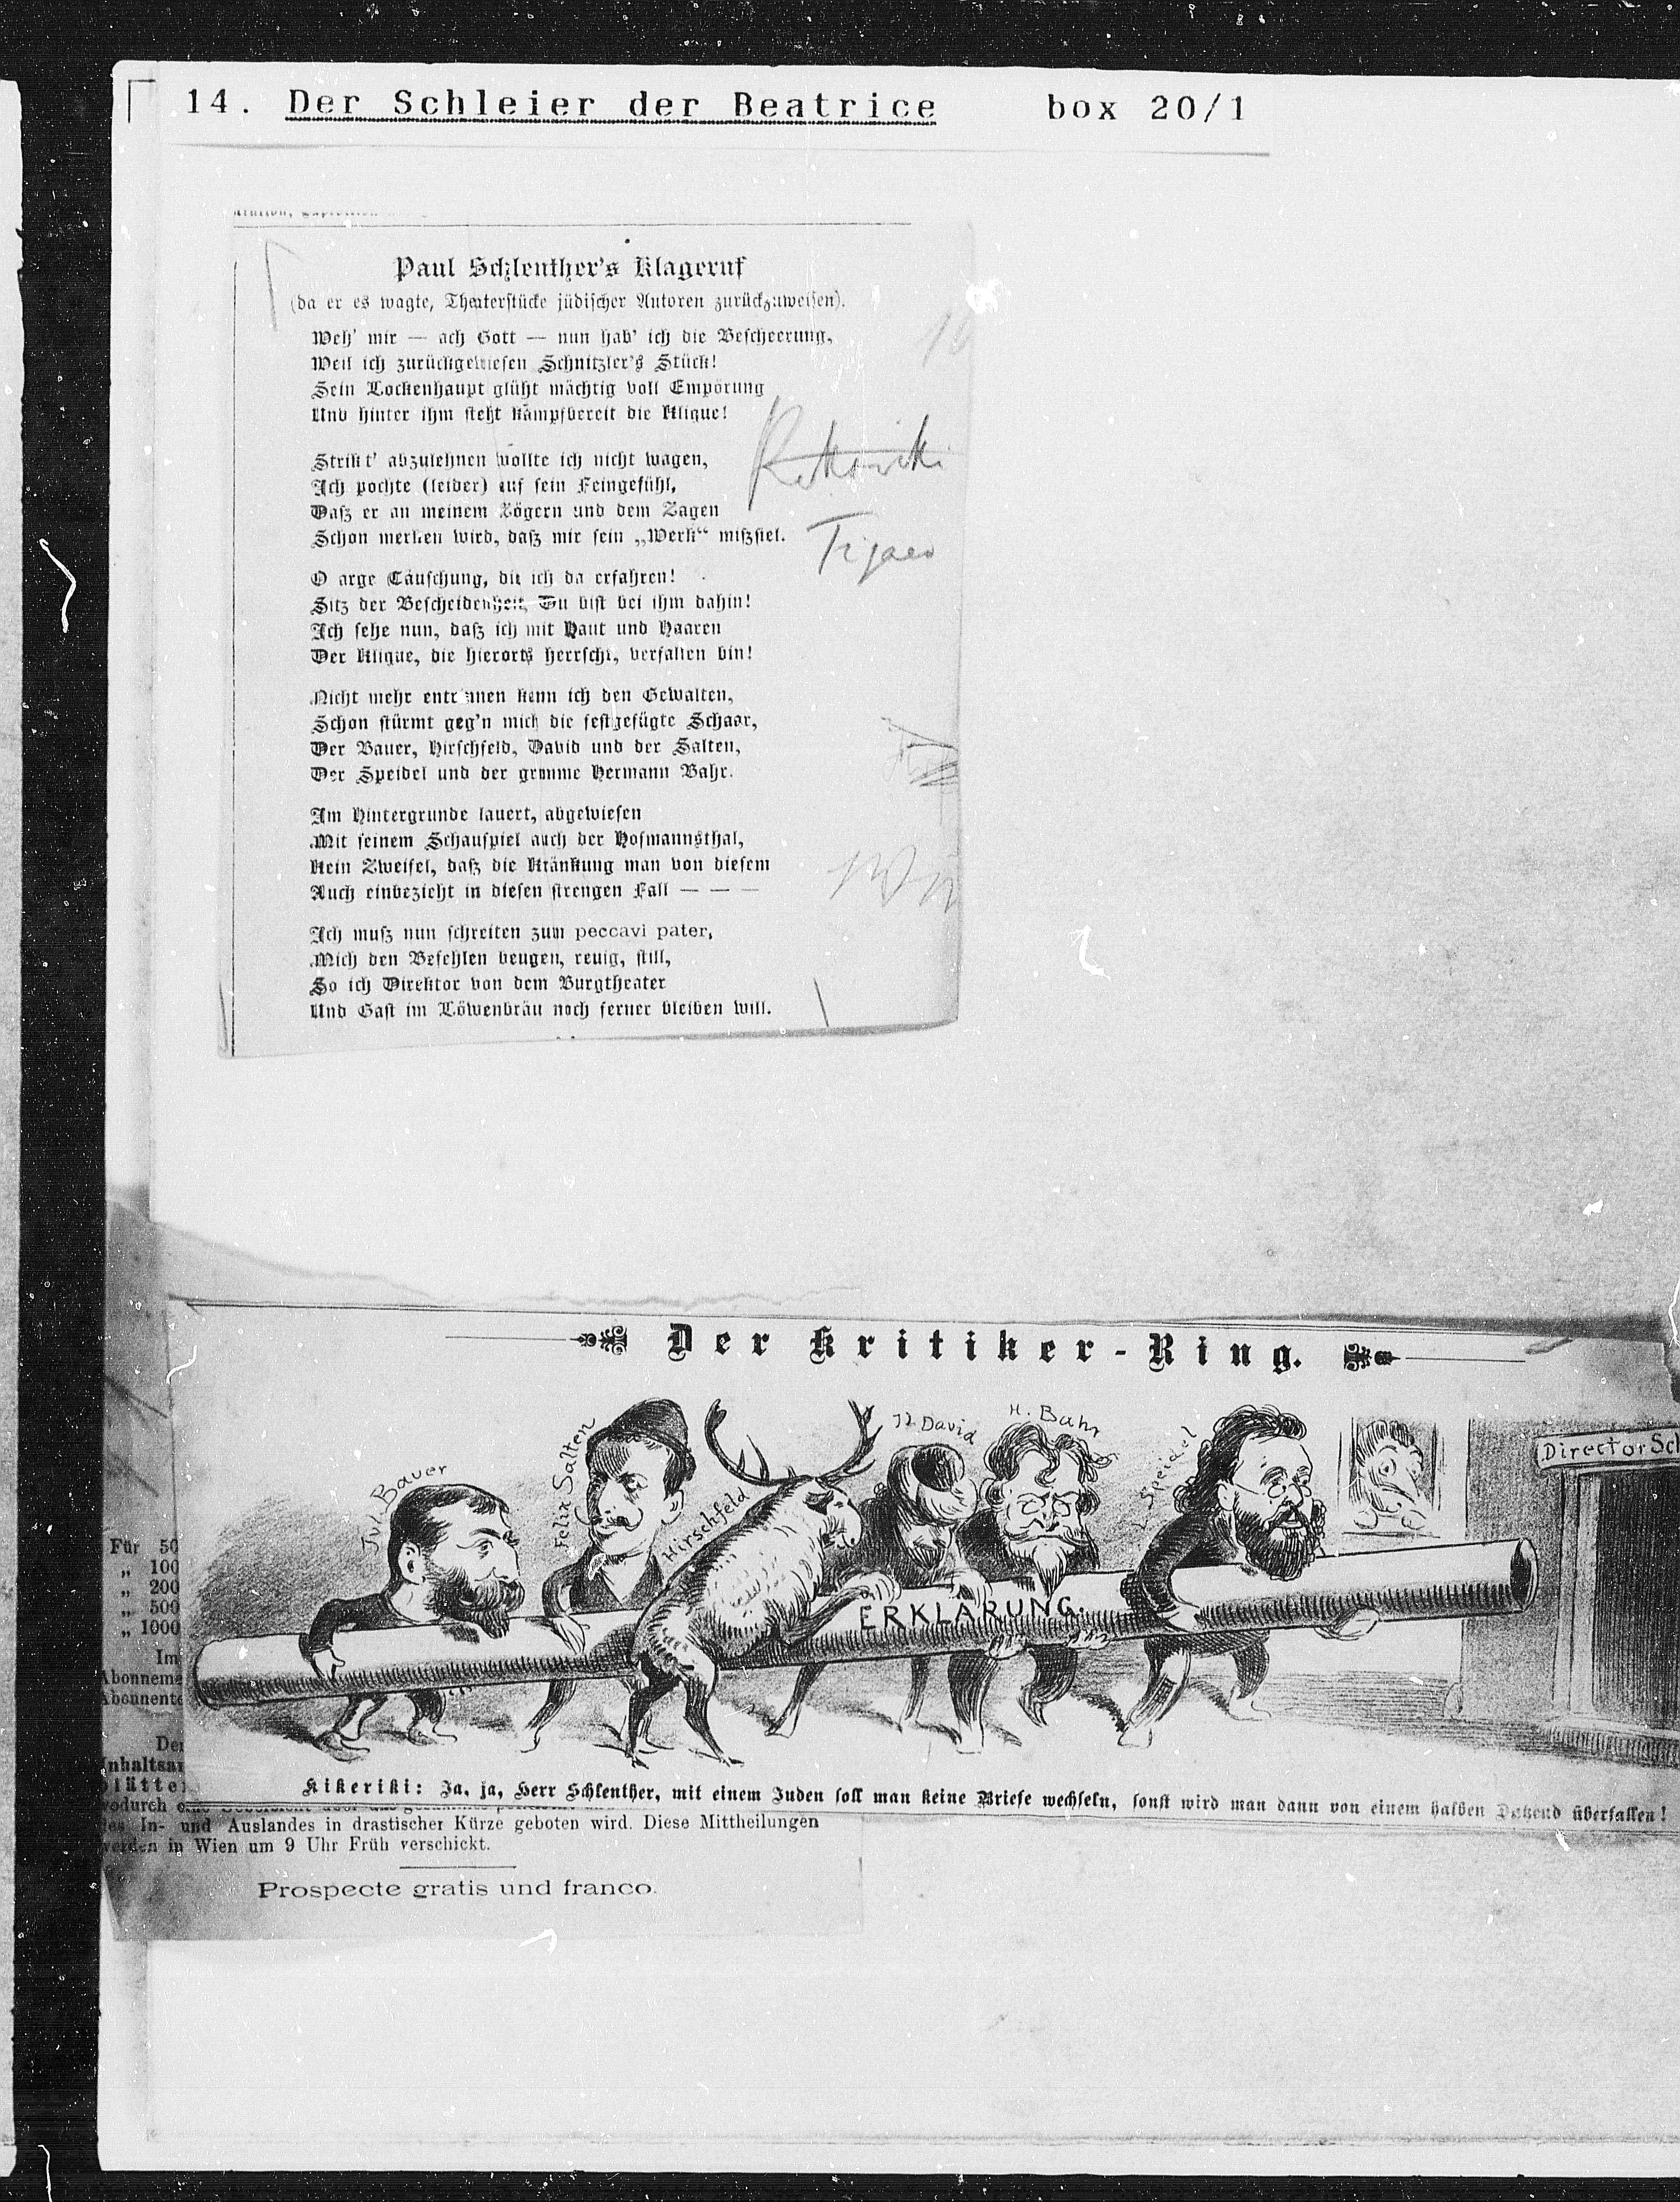 14. Der Schleier der Beatrice box 20/1
Paul Schlenther's Klageruf
(da er es wagte, Theaterstücke jüdischer Autoren zurückzuweisen).
Weh' mir — ach Gott — nun hab' ich die Bescheerung,
Weil ich zurückgewiesen Schnitzler's Stück!
Sein Lockenhaupt glüht mächtig voll Empörung
Und hinter ihm steht kampfbereit die Klique!
Strikt' abzulehnen wollte ich nicht wagen,
Ich pochte (leider) auf sein Feingefühl,
Daß er an meinem Zögern und dem Zagen
Schon merken wird, daß mir sein „Werk“ mißfiel.
O arge Täuschung, die ich da erfahren!
Sitz der Bescheidenheit, Du bist bei ihm dahin!
Ich sehe nun, daß ich mit Haut und Haaren
Der Klique, die hierorts herrscht, verfallen bin!
Nicht mehr entrinnen kann ich den Gewalten,
Schon stürmt geg'n mich die festgefügte Schaar,
Der Bauer, Hirschfeld, David und der Salten,
Der Speidel und der grimme Hermann Bahr.
Im Hintergrunde lauert, abgewiesen
Mit seinem Schauspiel auch der Hofmannsthal,
Kein Zweifel, daß die Kränkung man von diesem
Auch einbezieht in diesen strengen Fall — — —
Ich muß nun schreiten zum peccavi pater,
Mich den Befehlen beugen, reuig, still,
So ich Direktor von dem Burgtheater
Und Gast im Löwenbräu noch ferner bleiben will.
Der Kritiker-Ring.
Jul. Bauer
Felix Salten
Hirschfeld
David
H. Bahr
L. Speidel
Director Sch
ERKLÄRUNG.
Für 50
„ 100
„ 200
„ 500
„ 1000
Im
Abonneme
Abonnente
Der
Inhaltsan
blätte
Kikeriki: Ja, ja, Herr Schlenther, mit einem Juden soll man keine Briefe wechseln, sonst wird man dann von einem halben Dutzend überfallen!
wodurch
des In- und Auslandes in drastischer Kürze geboten wird. Diese Mittheilungen
werden in Wien um 9 Uhr Früh verschickt.
Prospecte gratis und franco.